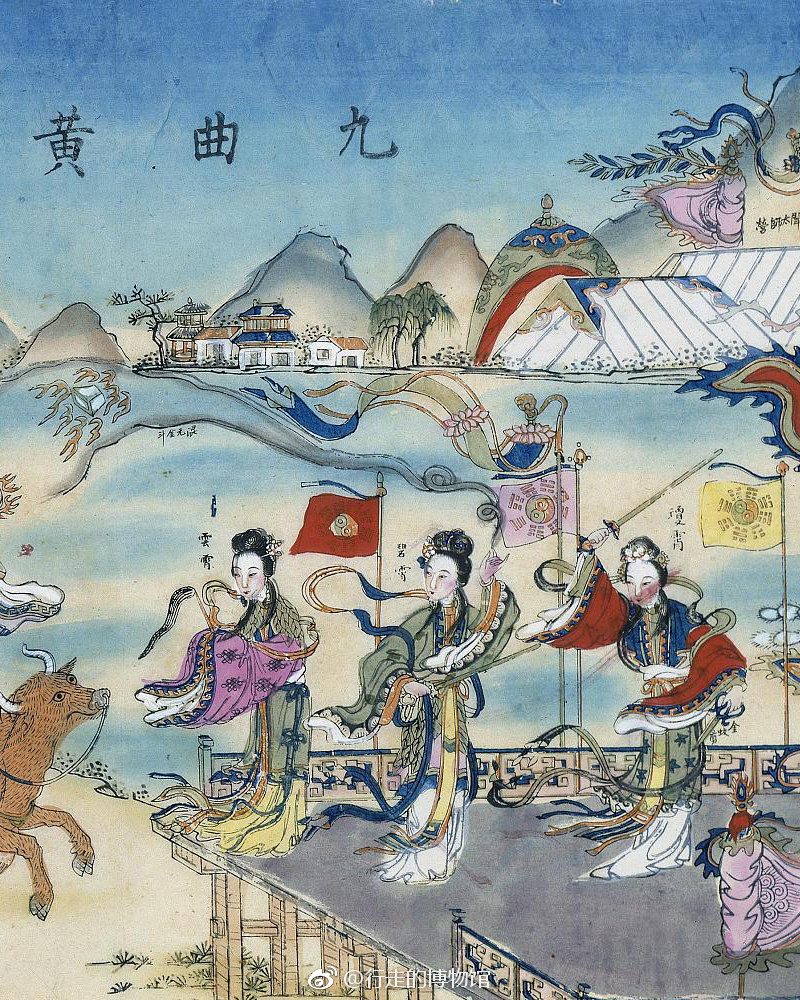 九曲黄
聞太師營
混元金斗
瓊霄
碧霄
雲霄
金蛟剪
@行走的博物馆